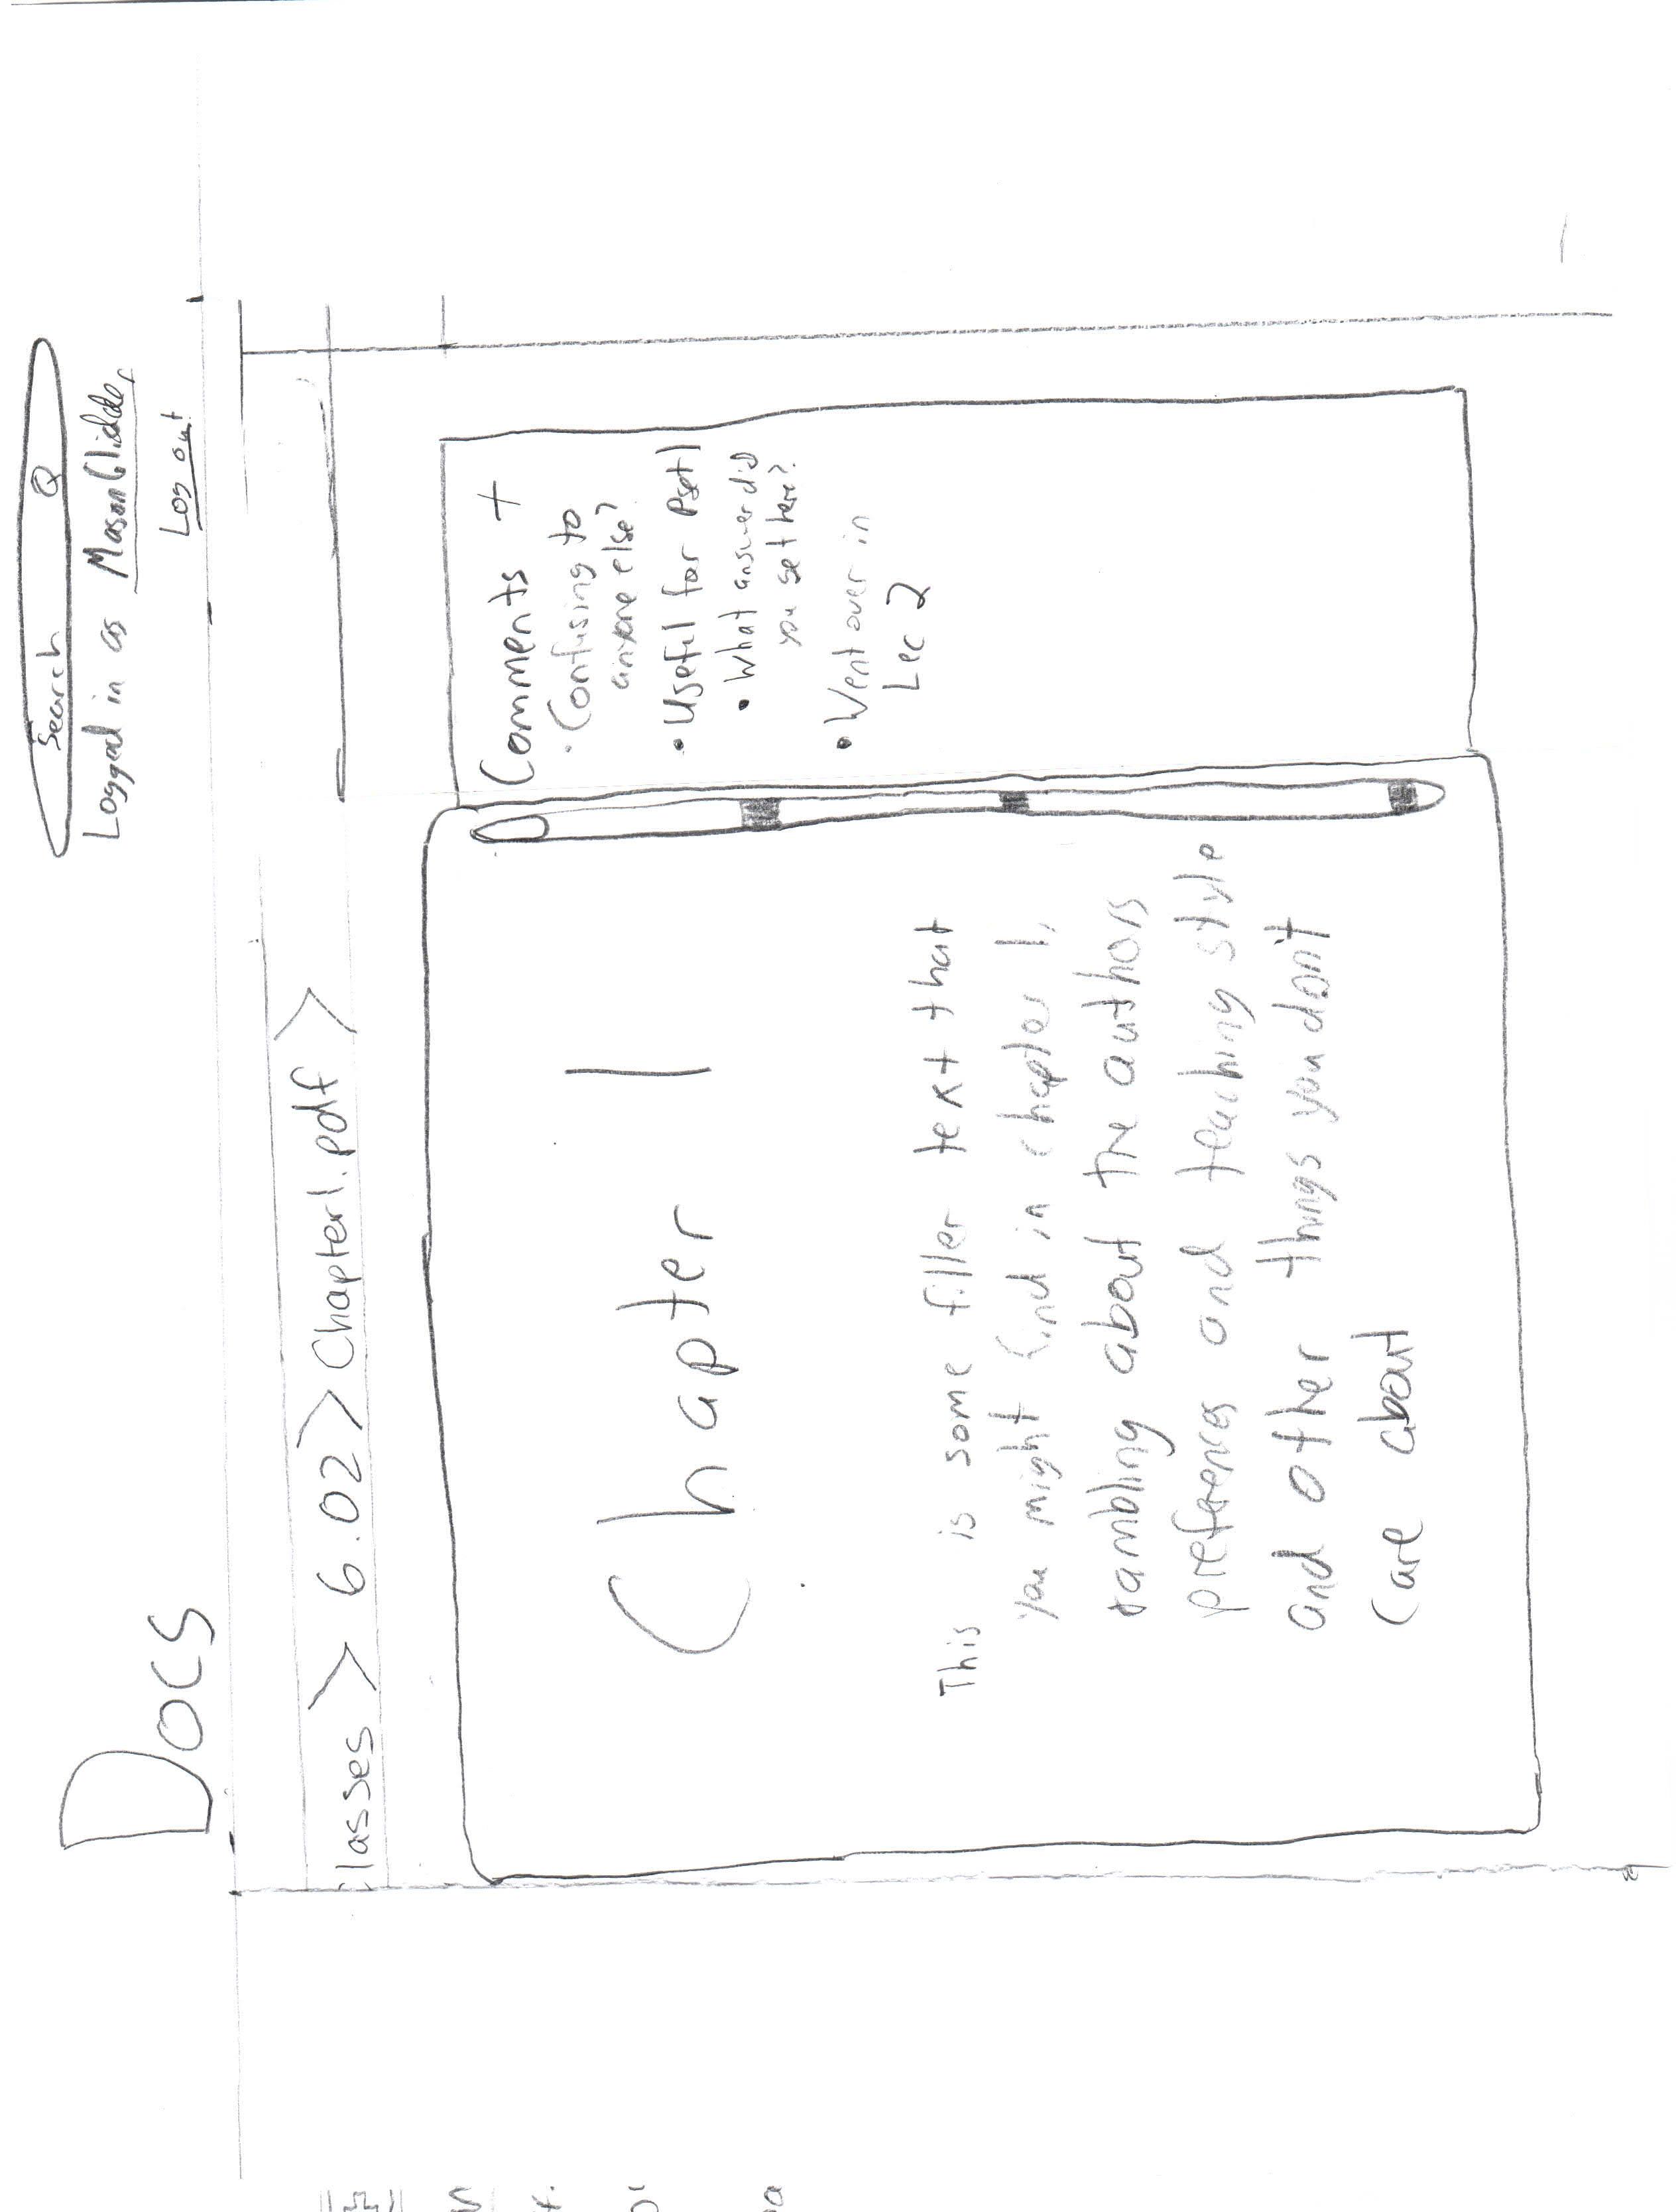 Search
Logged in as MasonGlidden
Log out
Docs
Classes > 6.02 > Chapter1.pdf >
Chapter 1
This is some filler text that
you might find in chapter 1,
rambling about the authors
preferences and teaching style
and other things you don't
care about
Comments +
• Confusing to
anyone else?
• Useful for Pset1
• What answer did
you get here?
• Went over in
Lec 2